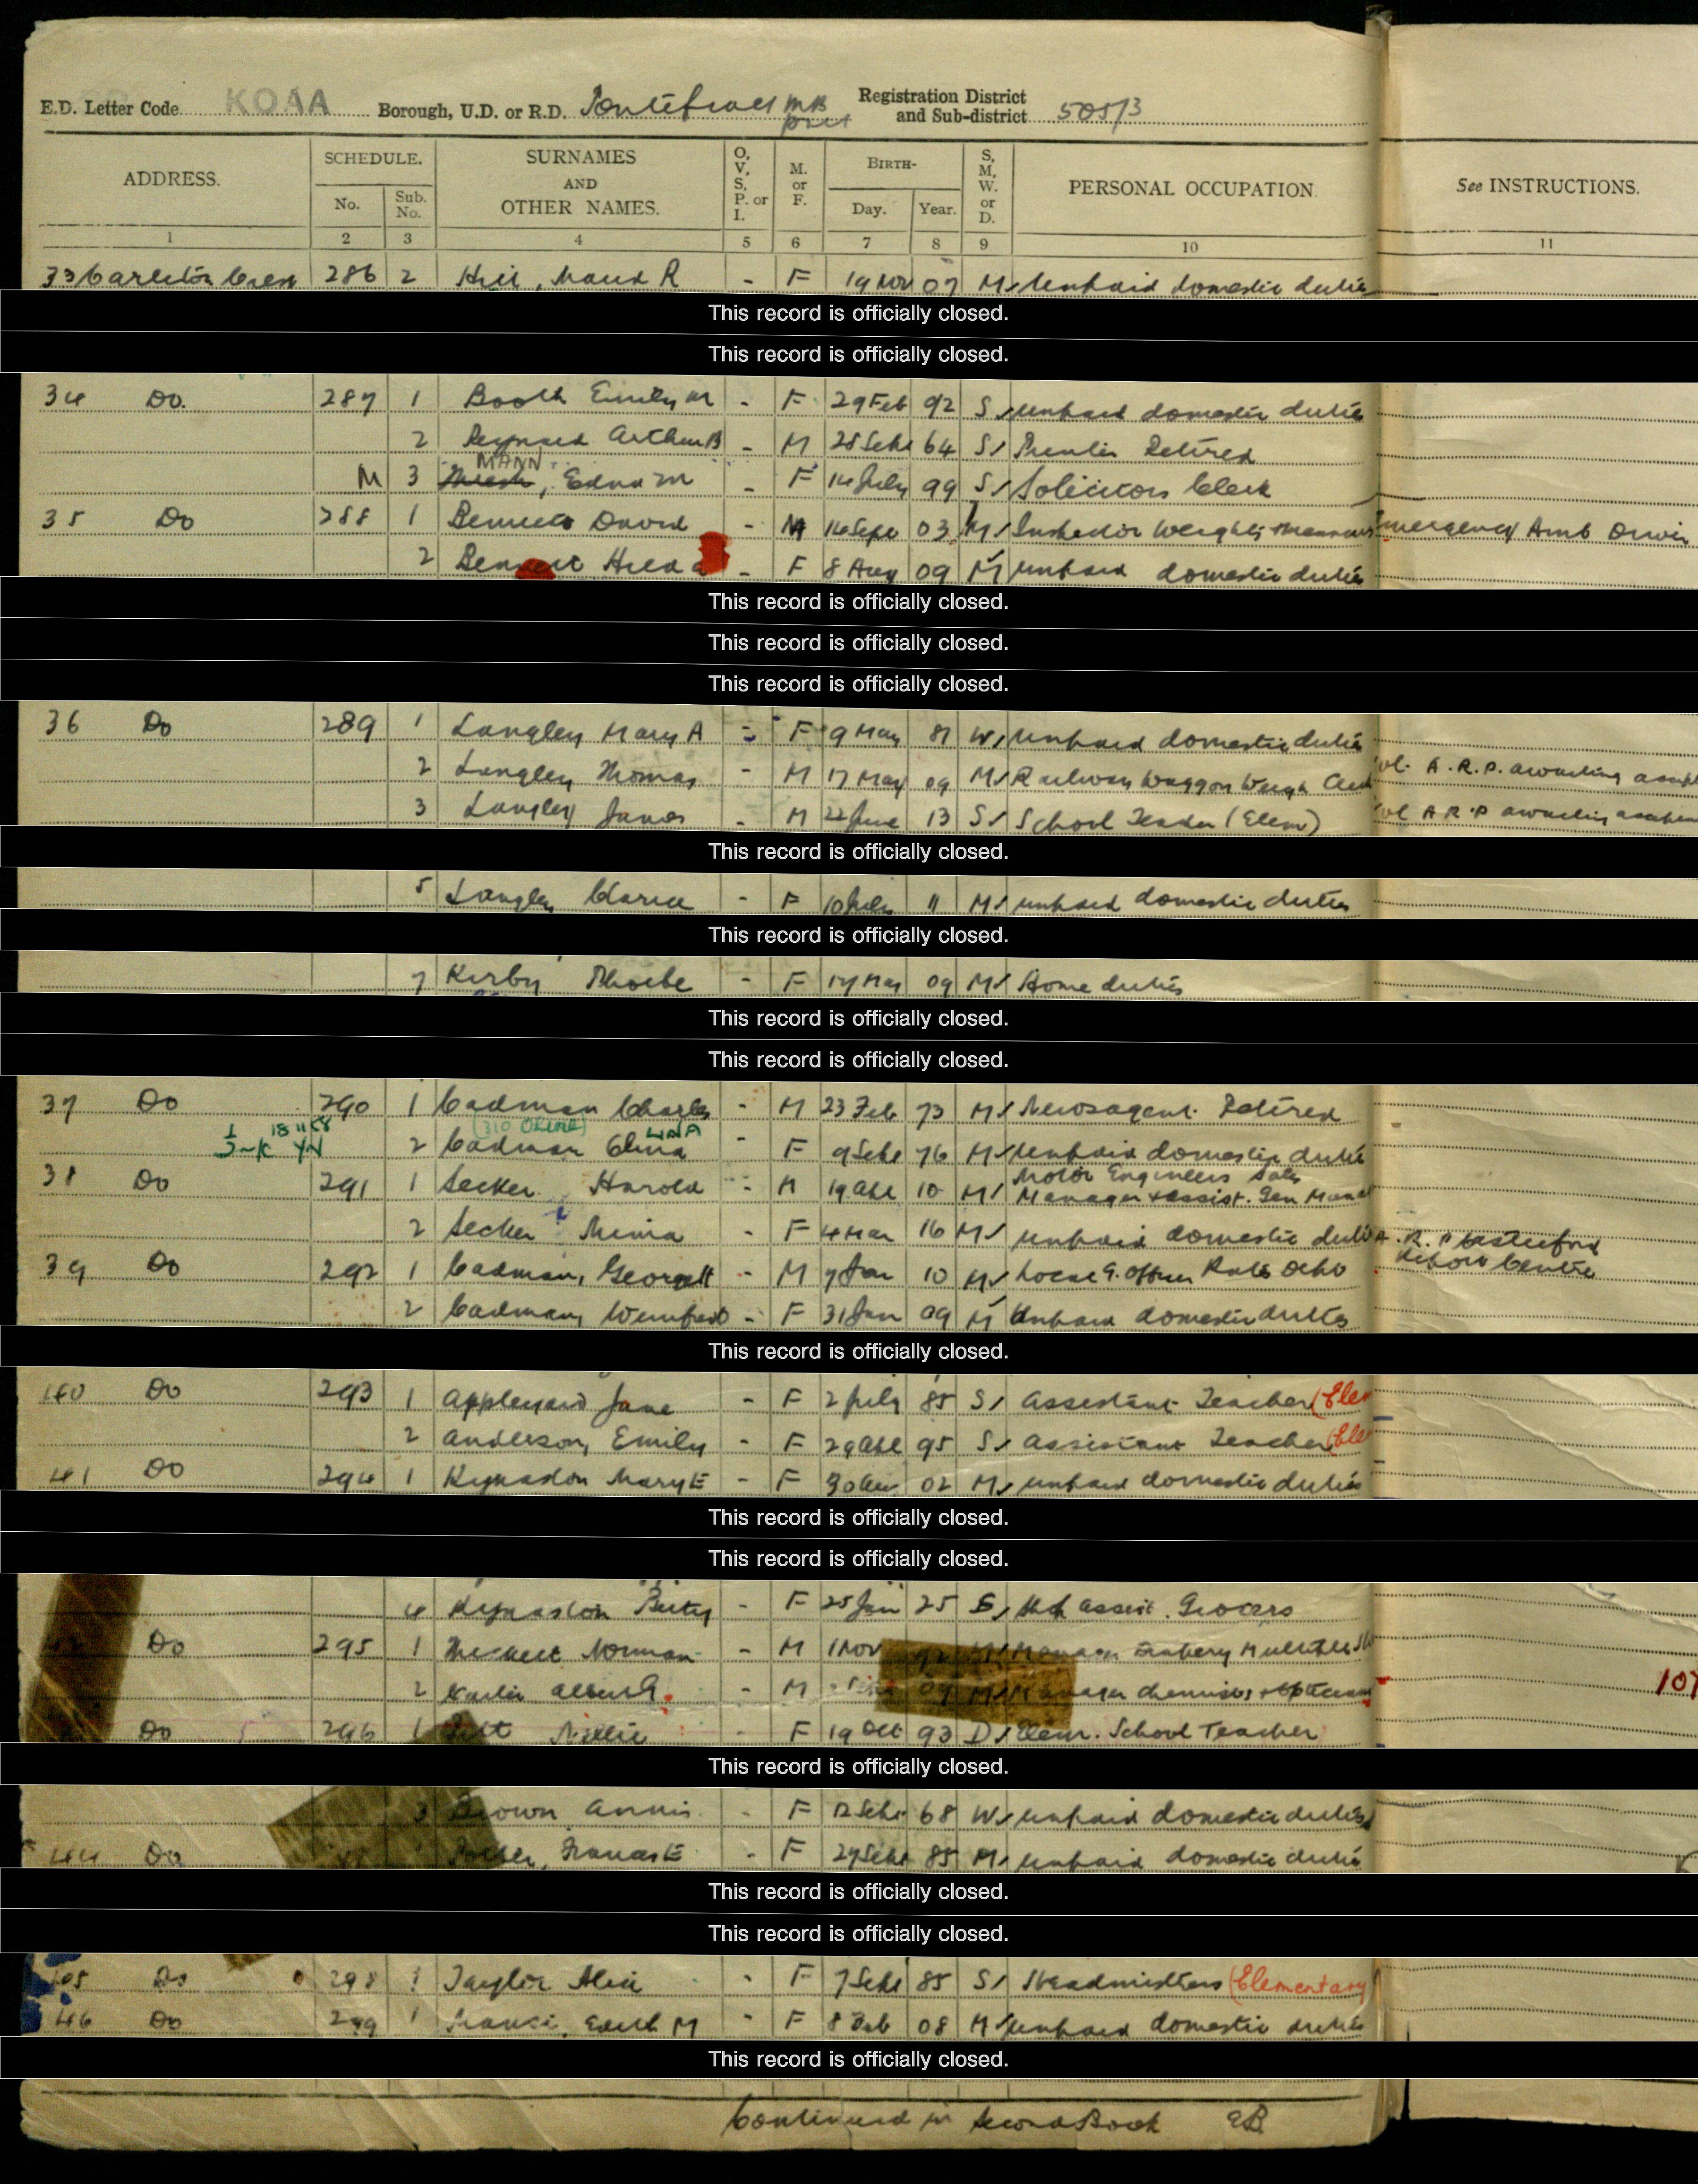 E.D. Letter Code KOAA Borough, U.D. or R.D. Pontefract MB part Registration District and Sub-district 505/3
ADDRESS. SCHEDULE. No. Sub. No. SURNAMES AND OTHER NAMES. O, V, S, P. or I. M. or F. BIRTH- Day. Year. S, M, W. or D. PERSONAL OCCUPATION. See INSTRUCTIONS.
1 2 3 4 5 6 7 8 9 10 11
33 Carleton Cres 286 2 Hill, Maud R - F 19 Nov 07 M Unpaid domestic duties
This record is officially closed.
This record is officially closed.
34 Do. 287 1 Booth Emily M - F 29 Feb 92 S unpaid domestic duties
2 Arthur B - M 28 Sept 64 S Retired
MANN
M 3 , Edna M - F 14 July 99 S Solicitors Clerk
35 Do 288 1 Bennett David - M 14 Sept 03 M Inspector Weights + Measures Emergency Amb Driver
2 Bennett Hilda - F 8 Aug 09 M unpaid domestic duties
This record is officially closed.
This record is officially closed.
This record is officially closed.
36 Do 289 1 Langley Mary A - F 9 May 81 W unpaid domestic duties
2 Langley Thomas - M 17 May 09 M Railway Waggon Weigh Clerk Vol. A.R.P. awaiting
3 Langley James - M 22 June 13 S School Teacher (Elem) Vol A R P awaiting
This record is officially closed.
5 Langley - F 10 July 11 M unpaid domestic duties
This record is officially closed.
7 Kirby Phoebe - F 09 M Home duties
This record is officially closed.
This record is officially closed.
37 Do 290 1 Cadman Charles - M 23 Feb 73 M Newsagent Retired
2 Cadman - F 9 Sept 76 M unpaid domestic duties
38 Do 291 1 Secker Harold - M 19 Apl 10 M Motor Engineers Sales
Manager + Assist. Gen Manag
2 Secker - F 4 Mar 16 M unpaid domestic duties A.R.P Castleford
Report Centre
39 Do 292 1 Cadman, George - M 7 Jan 10 M Local G. Officer Rate Dept
2 Cadman, Winifred - F 31 Jan 09 M Unpaid domestic duties
This record is officially closed.
40 Do 293 1 Appleyard Jane - F 2 July 85 S Assistant Teacher (Elem
2 Anderson, Emily - F 29 Apl 95 S Assistant Teacher (Ele
41 Do 294 1 Kynaston Mary E - F 30 02 M unpaid domestic duties
This record is officially closed.
This record is officially closed.
4 Kynaston Betty - F 25 Jan 25 S Assist. Grocers
Do 295 1 Norman - M 1 Nov 92 M Manager
2 Albert - M 09 M Manager chemists + Optician 107
Do 296 1 Nellie - F 19 Oct 93 D Elem. School Teacher
This record is officially closed.
3 Brown Annie - F 12 Sept 68 W unpaid domestic duties
44 Do Frances E - F 27 Sept 85 M unpaid domestic duties
This record is officially closed.
This record is officially closed.
45 Do 298 1 Taylor Alice - F 7 Sept 85 S Headmistress (Elementary
46 Do 299 1 Edith M - F 8 Feb 08 M unpaid domestic duties
This record is officially closed.
Continued in Second Book EB